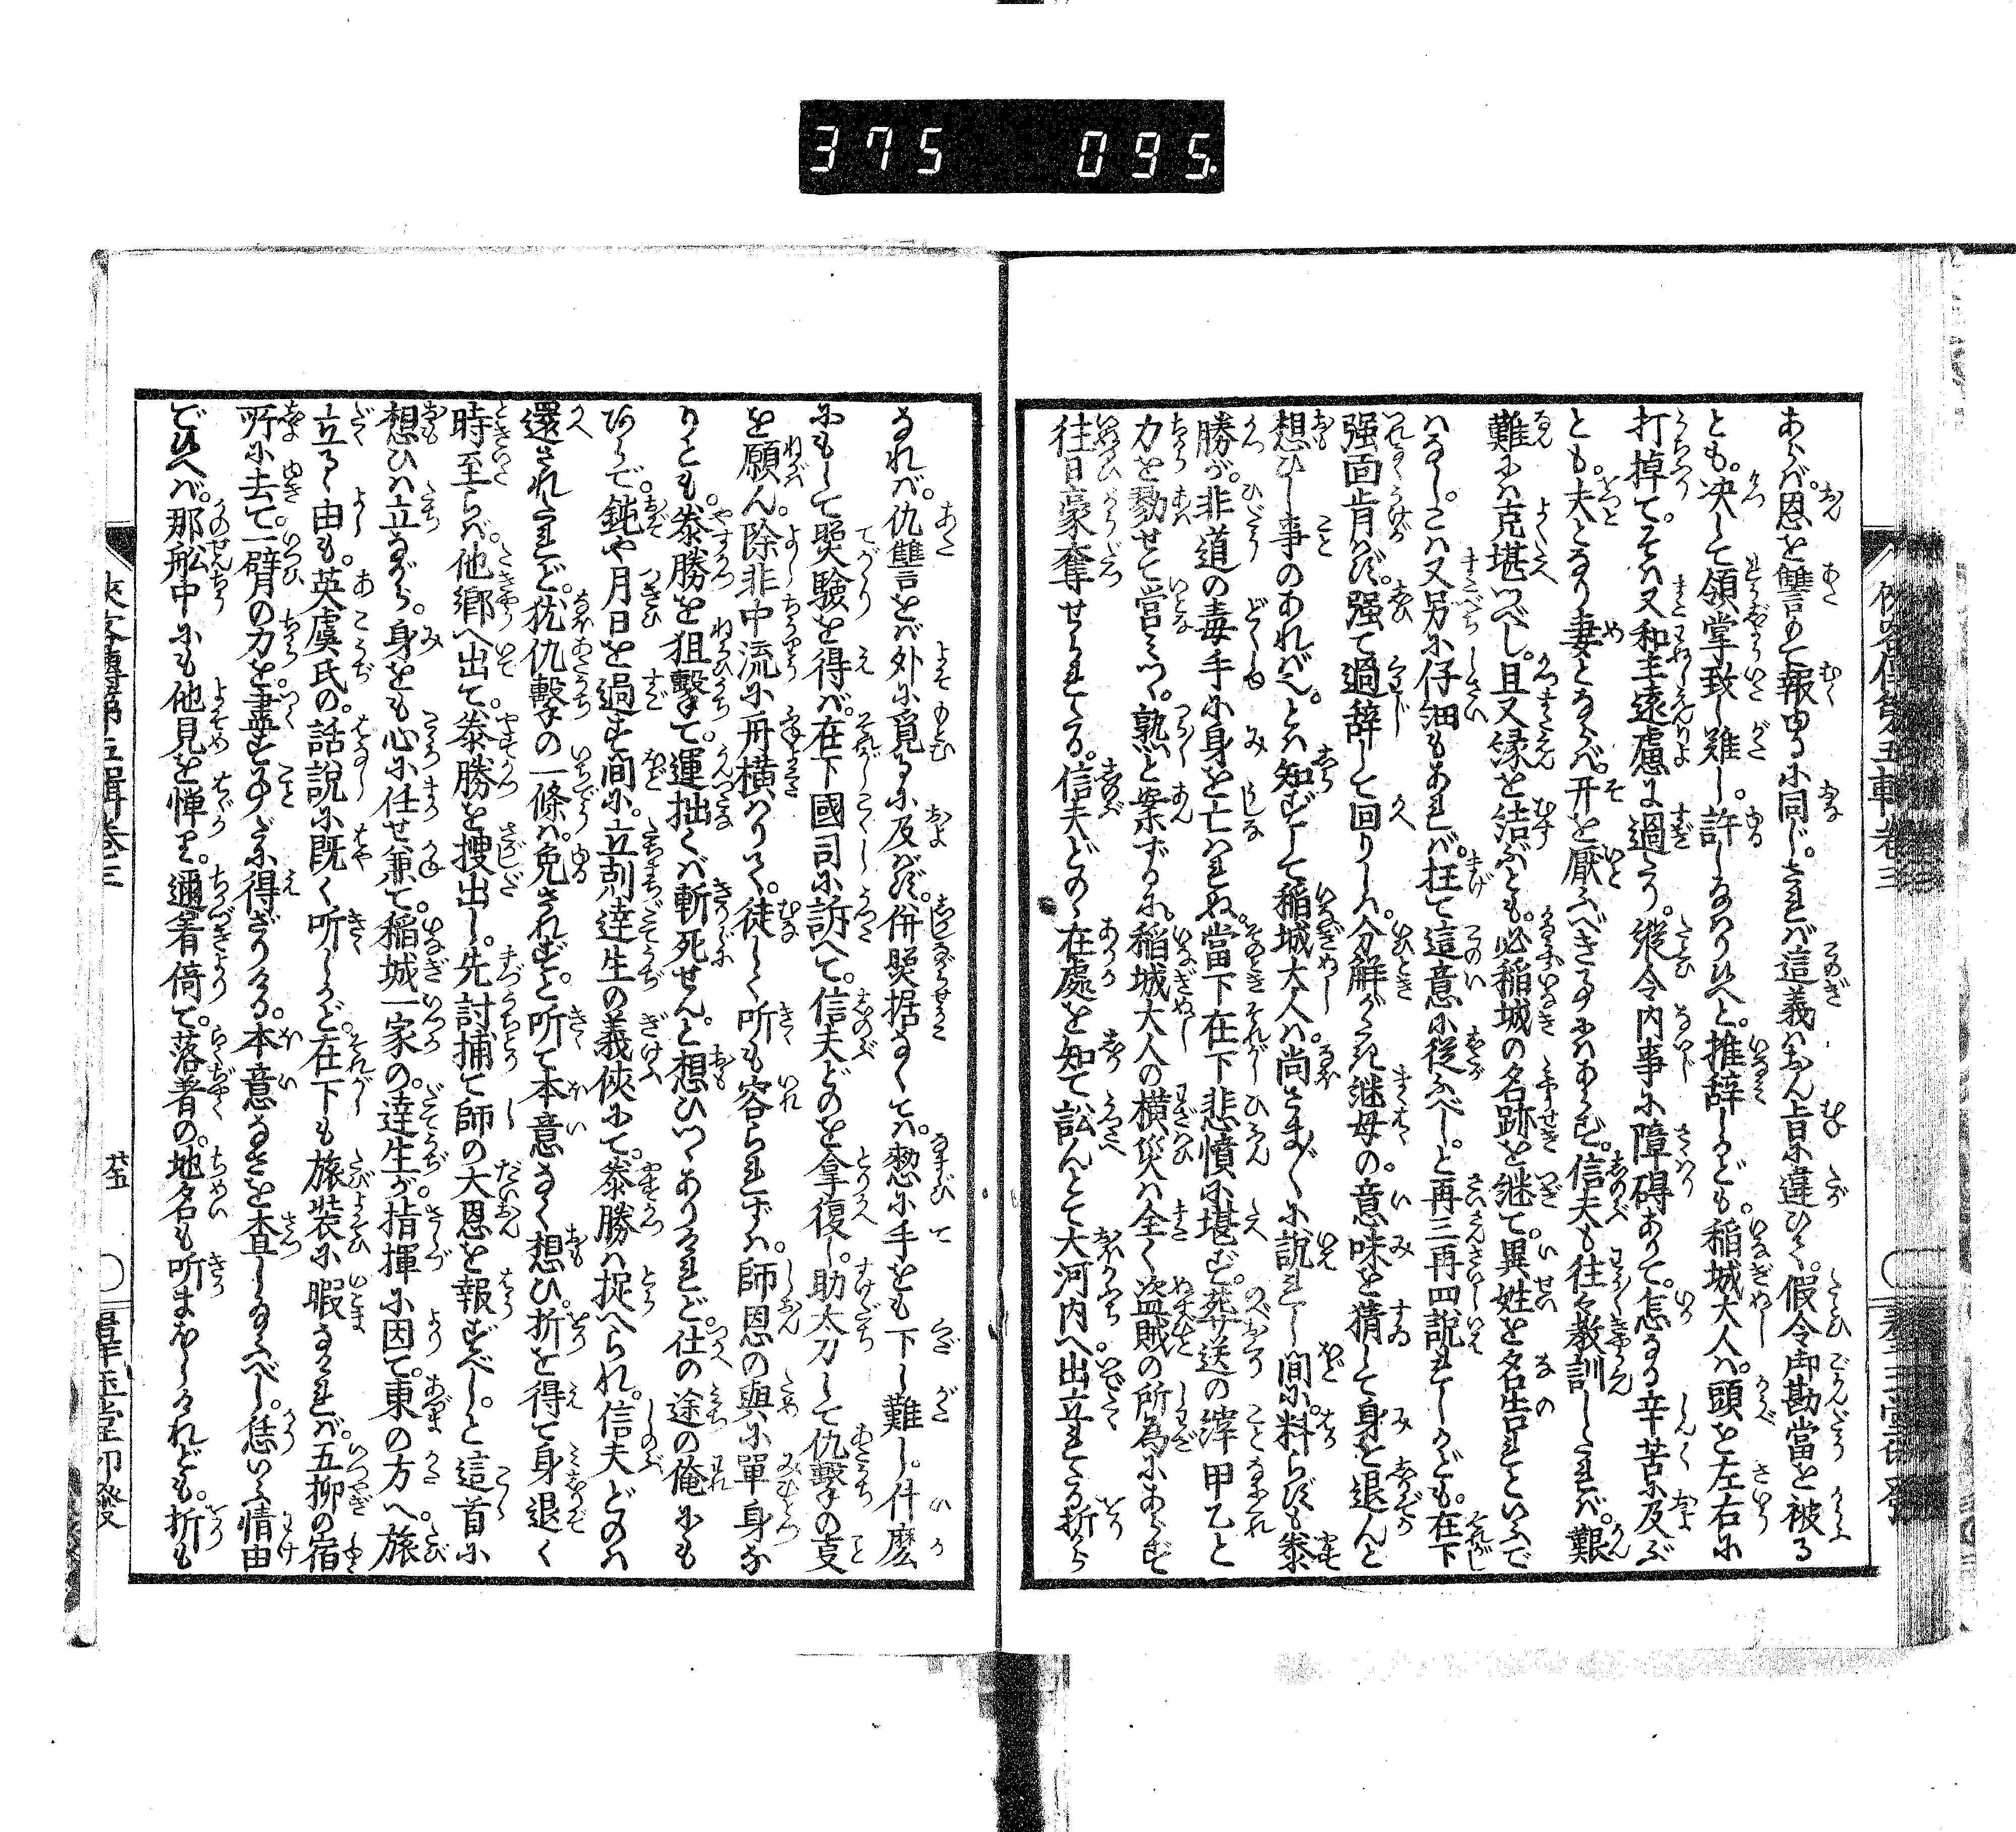 375 095
あらバ。恩を讐もて報ゆるに同じ。されバ這義ハおん上に違ひて。假令御勘當を被る
とも。決して領掌致し難し。許しなハり候へと。推辞しかども。稲城大人ハ。頭を左右に
打掉て。そハ又和主遠慮に過たり。縦令内事に障碍ありて。怎なる辛苦に及ぶ
とも。夫となり妻とならバ。开を厭ふべき事にハあらじ。信夫も往々教訓したれバ。艱
難にハ克堪つべし。且又縁を結ぶとも。必稲城の名跡を継て。異姓を名告れといふで
ハなし。こハ又另に仔細もあれバ。枉て這意に従ふべし。と再三再四説れしかども。在下
强面肯ハず。强て過辞して回りしハ。分解がたき継母の。意味を猜して身を退んと
想ひし事のあれバ也。とハ知ずして稲城大人ハ。尚さま〴〵に説れし間に。料らずも泰
勝が。非道の毒手に身を亡ハれぬ。當下在下悲憤に堪ず。葬送の繂甲乙と
力を勠せて営ミつゝ。熟〻と案ずるに。稲城大人の横災ハ全く盗賊の所為にあらず
往日豪奪せられたる。信夫どのゝ在處を知て訟んとて大河内へ出立れたる折から
なれバ。仇讐をバ外に覓るに及バず。併照据なくてハ。憖に手をも下し難し。什麼
にもして照験を得バ。在下國司に訴へて。信夫どのを拿復し。助太刀して仇撃の㕝
を願ん。除非中流に舟横ハりて。徒しく听も容られずハ。師恩の與に單身な
りとも。泰勝を狙撃て。運拙くバ斬死せんと想ひつゝありたれど。仕の途の俺にも
あらで。鈍や月日を過す間に。立刻達生の義侠にて。泰勝ハ捉へられ。信夫どのハ
還されたれど。犹仇撃の一條ハ。免されずと听て本意なく想ひ。折を得て身退く
時至らバ。他郷へ出て。泰勝を捜出し。先討捕て師の大恩を報ずべし。と這首に
想ひハ立ながら。身をも心に任せ兼て。稲城一家の。達生が。指揮に因て。東の方へ。旅
立るゝ由も。英虞氏の。話説に既く听しかど。在下も旅装に暇なけれバ。五柳の宿
所に去て。一臂の力を盡す事だに得ざりける。本意なさを査しなふべし。恁いふ情由
で候へバ。那舩中にも他見を憚り。邇着倚て。落着の。地名も听まほしけれども。折も
侠客傳第五輯巻三
廿五
群玉堂印發